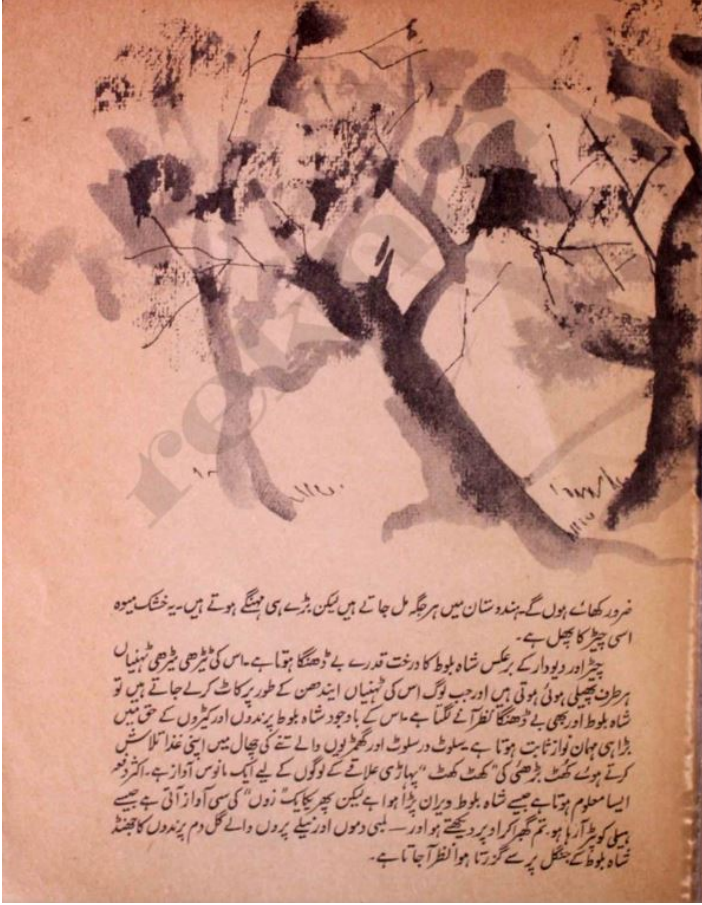 ضرور کھائے ہوں گے۔ ہندوستان میں ہر جگہ مل جاتے ہیں لیکن بڑے ہی مہنگے ہوتے ہیں۔ یہ خشک میوہ
اسی چیڑ کا پھل ہے۔
چیڑ اور دیودار کے برعکس شاہ بلوط کا درخت قدرے بے ڈھنگا ہوتا ہے۔ اس کی ٹیڑھی میڑھی ٹہنیاں
ہر طرف پھیلی ہوئی ہوتی ہیں اور جب لوگ اس کی ٹہنیاں ایندھن کے طور پر کاٹ کر لے جاتے ہیں تو
شاہ بلوط اور بھی بے ڈھنگا نظر آنے لگتا ہے۔ اس کے باوجود شاہ بلوط پرندوں اور کیڑوں کے حق میں
بڑا ہی مہمان نواز ثابت ہوتا ہے۔ سلوٹ در سلوٹ اور گھڑیوں والے تنے کی چھال میں اپنی غذا تلاش
کرتے ہوئے کھُٹ بڑھئی کی "کھٹ کھٹ" پہاڑی علاقے کے لوگوں کے لیے ایک مانوس آواز ہے۔ اکثر دفعہ
ایسا معلوم ہوتا ہے جیسے شاہ بلوط ویران پڑا ہوا ہے لیکن پھر یکایک "زوں" کی سی آواز آتی ہے جیسے
ہیلی کوپٹر آ رہا ہو۔ تم گھبرا کر اوپر دیکھتے ہو اور — لمبی دموں اور نیلے پروں والے گل دم پرندوں کا جھنڈ
شاہ بلوط کے جنگل پر سے گزرتا ہوا نظر آ جاتا ہے۔
rekhta